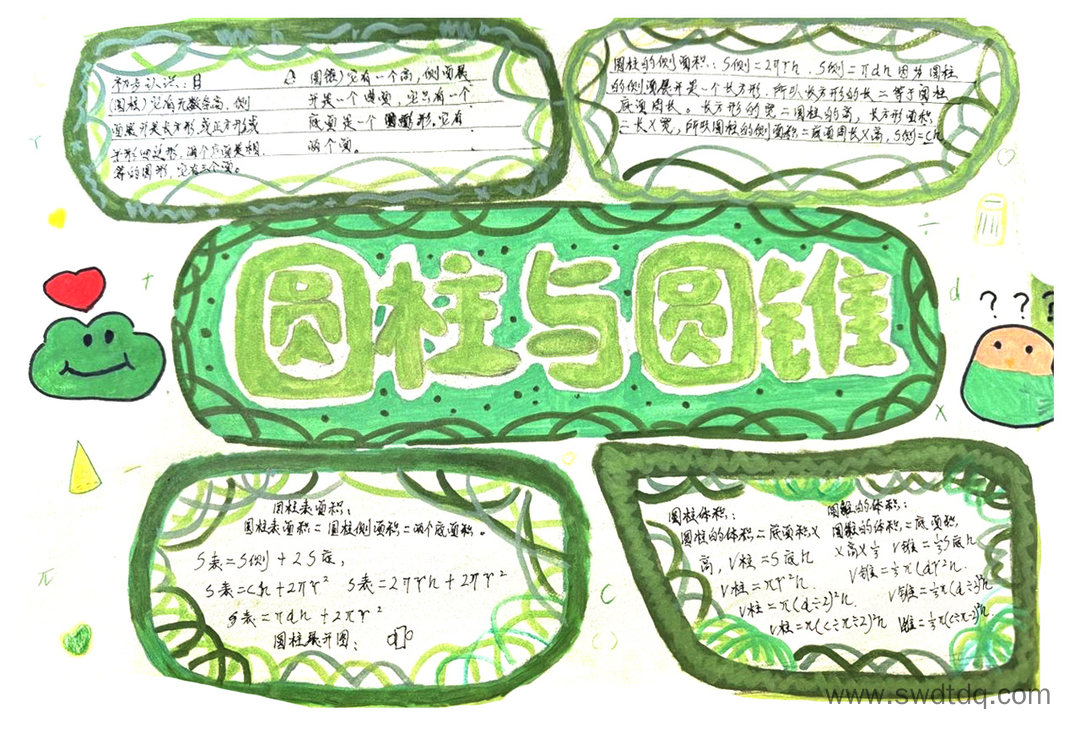 初步认识:
(圆柱)它有无数条高,侧
面展开是长方形,或正方形或
平行四边形,两个底面是相
等的圆形,它有三个面。
(圆锥)它有一个高,侧面展
开是一个曲面,它只有一个
底面是一个圆形,它有
两个面。
圆柱的侧面积:S侧=2πrh,S侧=πdh因为圆柱
的侧面展开是一个长方形,所以长方形的长=等于圆柱
底面周长。长方形的宽=圆柱的高,长方形面积
=长×宽,所以圆柱的侧面积=底面周长×高,S侧=ch
圆柱与圆锥
? ? ?
+
÷
d
x
π
C
( )
圆柱表面积:
圆柱表面积=圆柱侧面积=两个底面积。
S表=S侧+2S底,
S表=ch+2πr² S表=2πrh+2πr²
S表=πdh+2πr²
圆柱展开图:
圆柱体积:
圆柱的体积=底面积×
高,V柱=S底h
V柱=πr²h
V柱=π(d÷2)²h
V柱=π(c÷π÷2)²h
圆锥的体积:
圆锥的体积=底面积
×高×⅓ V锥=⅓S底h
V锥=⅓πr²h
V锥=⅓π(d÷2)²h
V锥=⅓π(c÷π÷2)²h
www.swdtdq.com